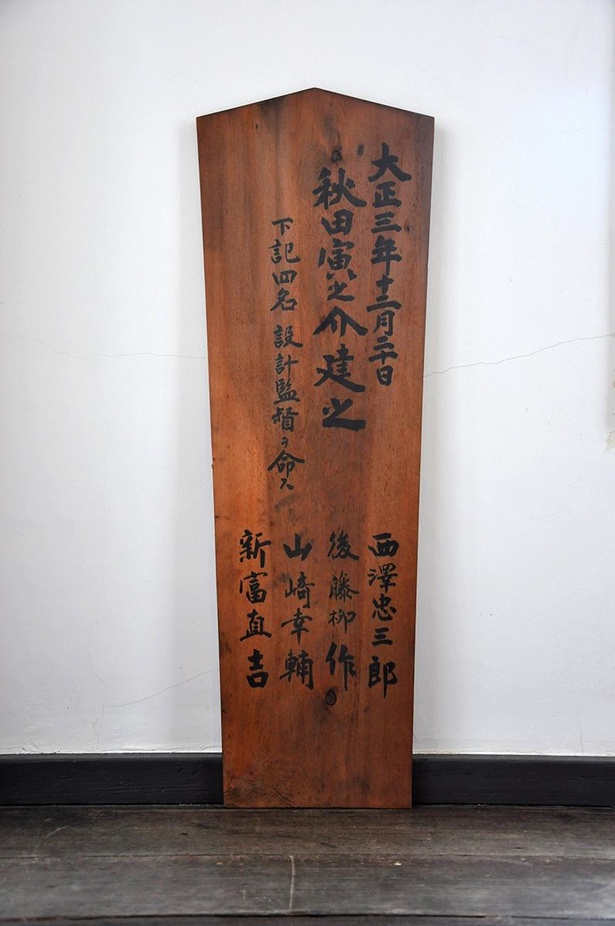 大正三年十二月二十日
秋田寅之介建之
下記四名設計監督ヲ命ス
西澤忠三郎
後藤柳作
山﨑幸輔
新富直吉